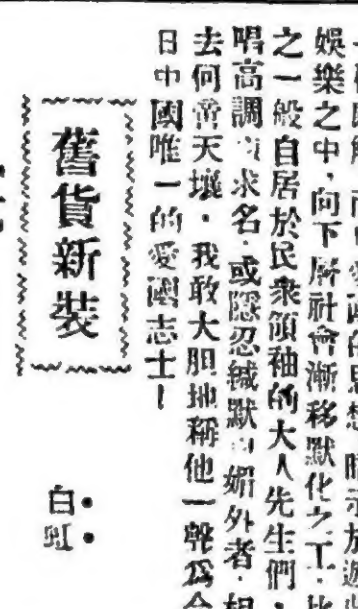 愛國的思想，暗示於遊戲
娛樂之中，向下層社會漸移默化之工，比
之一般自居於民衆領袖的大人先生們，
唱高調以求名，或隱忍緘默以媚外者，相
去何啻天壤。我敢大胆地稱他一聲爲今
日中國唯一的愛國志士！
舊貨新裝
白虹